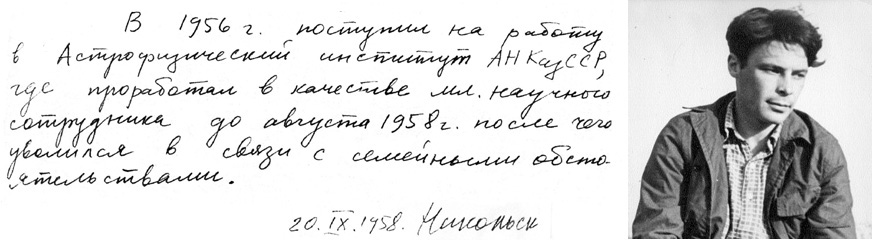 В 1956 г. поступил на работу
в Астрофизический институт АН КазССР,
где проработал в качестве мл. научного
сотрудника до августа 1958 г. после чего
уволился в связи с семейными обсто-
ятельствами.
20.IX.1958.